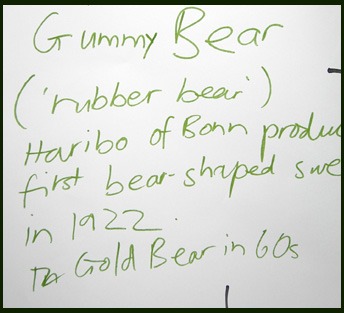 Gummy Bear
('rubber bear')
Haribo of Bonn produ
first bear-shaped swe
in 1922.
Gold Bear in 60s